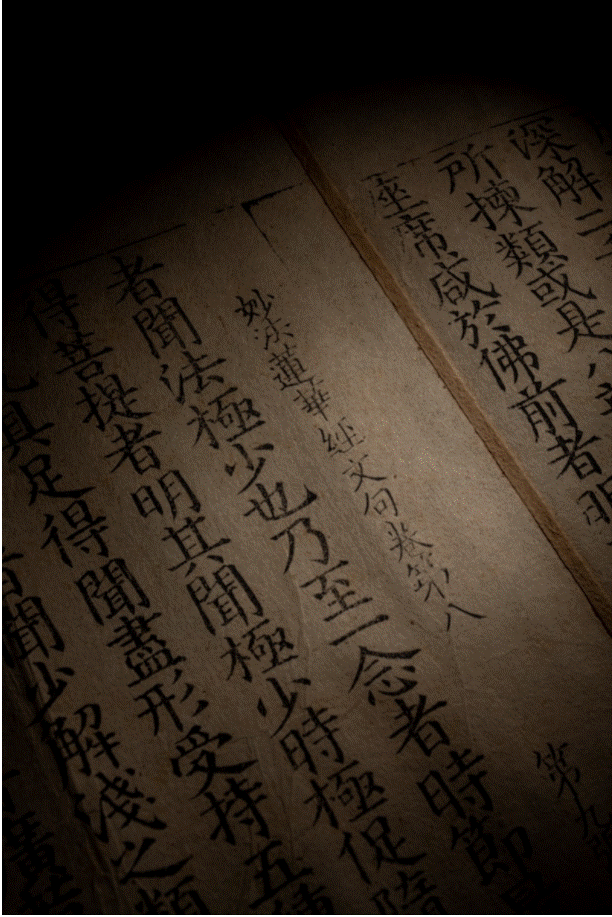 深解二
所揀類或是八
座席咸於佛前者明
妙法蓮華經文句卷第八
第九
者聞法極少也乃至一念者時節
得菩提者明其聞極少時極促隨
具足得聞盡形受持五種
聞少解淺之類
廣